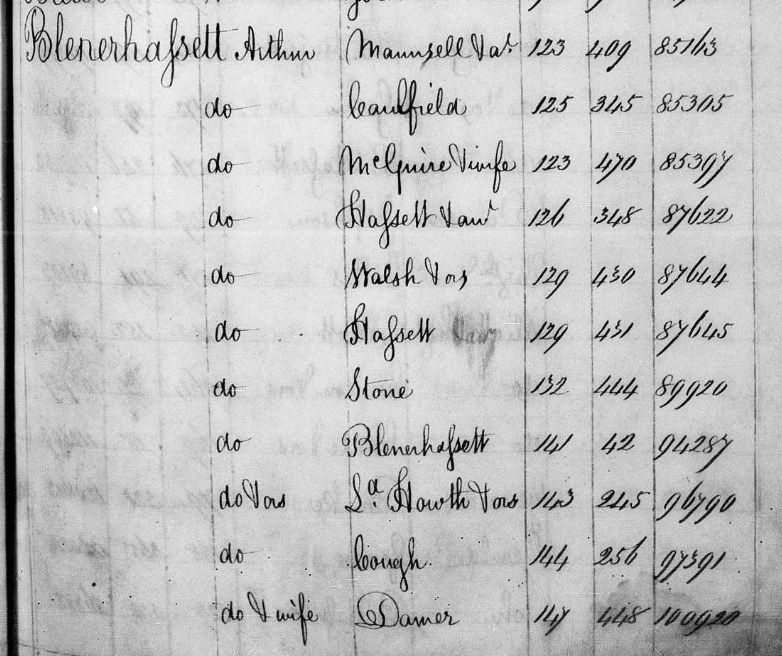 Blenerhassett Arthur Maunsell & ar 123 409 85163
do Caulfield 125 345 85305
do McGuire & wife 123 470 85397
do Hassett & anr 126 348 87622
do Walsh & ors 129 430 87644
do Hassett 129 431 87645
do Stone 132 444 89920
do Blenerhassett 141 42 94287
do & ors La. Howth & ors 143 245 96790
do Cough. 144 256 97391
do & wife Damer 147 448 100920